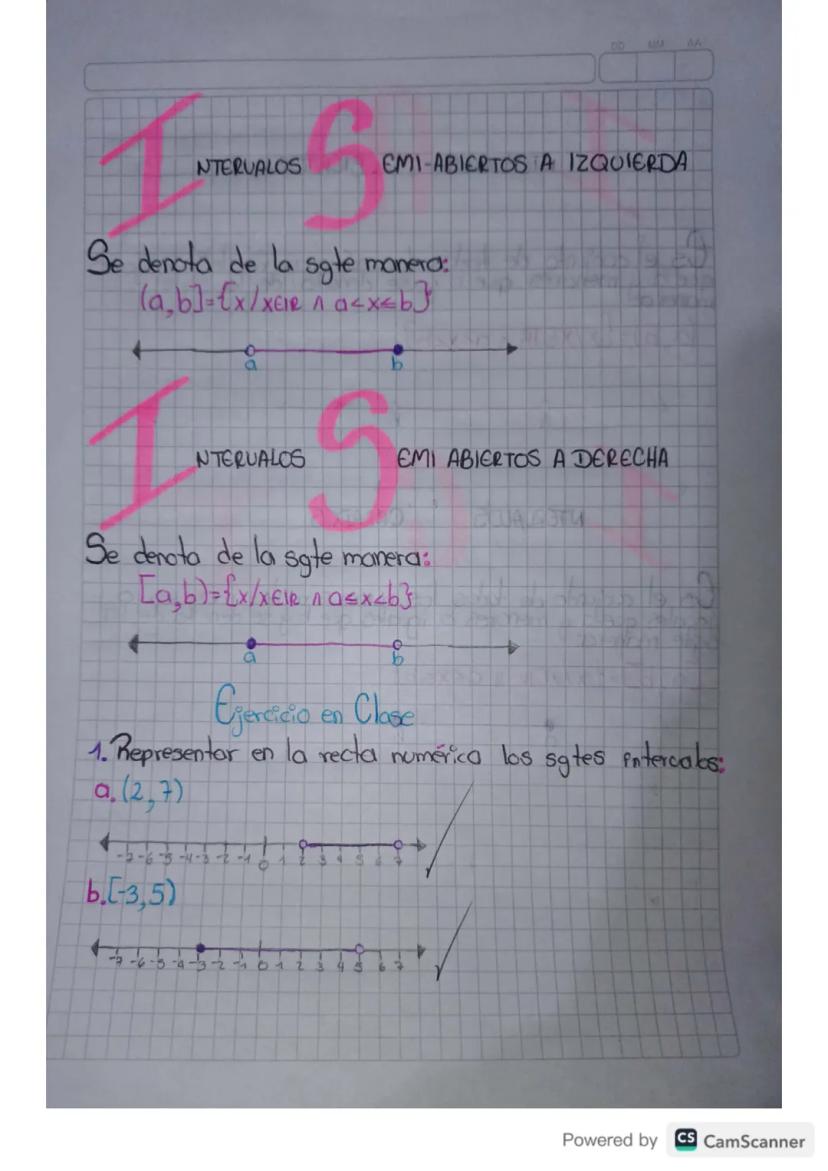 DD MM AA
INTERVALOS SEMI-ABIERTOS A IZQUIERDA
Se denota de la sgte manera:
(a,b]={x/x∈IR ∧ a<x≤b}
a b
INTERVALOS SEMI ABIERTOS A DERECHA
Se denota de la sgte manera:
[a,b)={x/x∈IR ∧ a≤x<b}
a b
Ejercicio en Clase
1. Representar en la recta numérica los sgtes intervalos:
a. (2,7)
-7 -6 -5 -4 -3 -2 -1 0 1 2 3 4 5 6 7
b. [-3,5)
-7 -6 -5 -4 -3 -2 -1 0 1 2 3 4 5 6 7
Powered by CS CamScanner